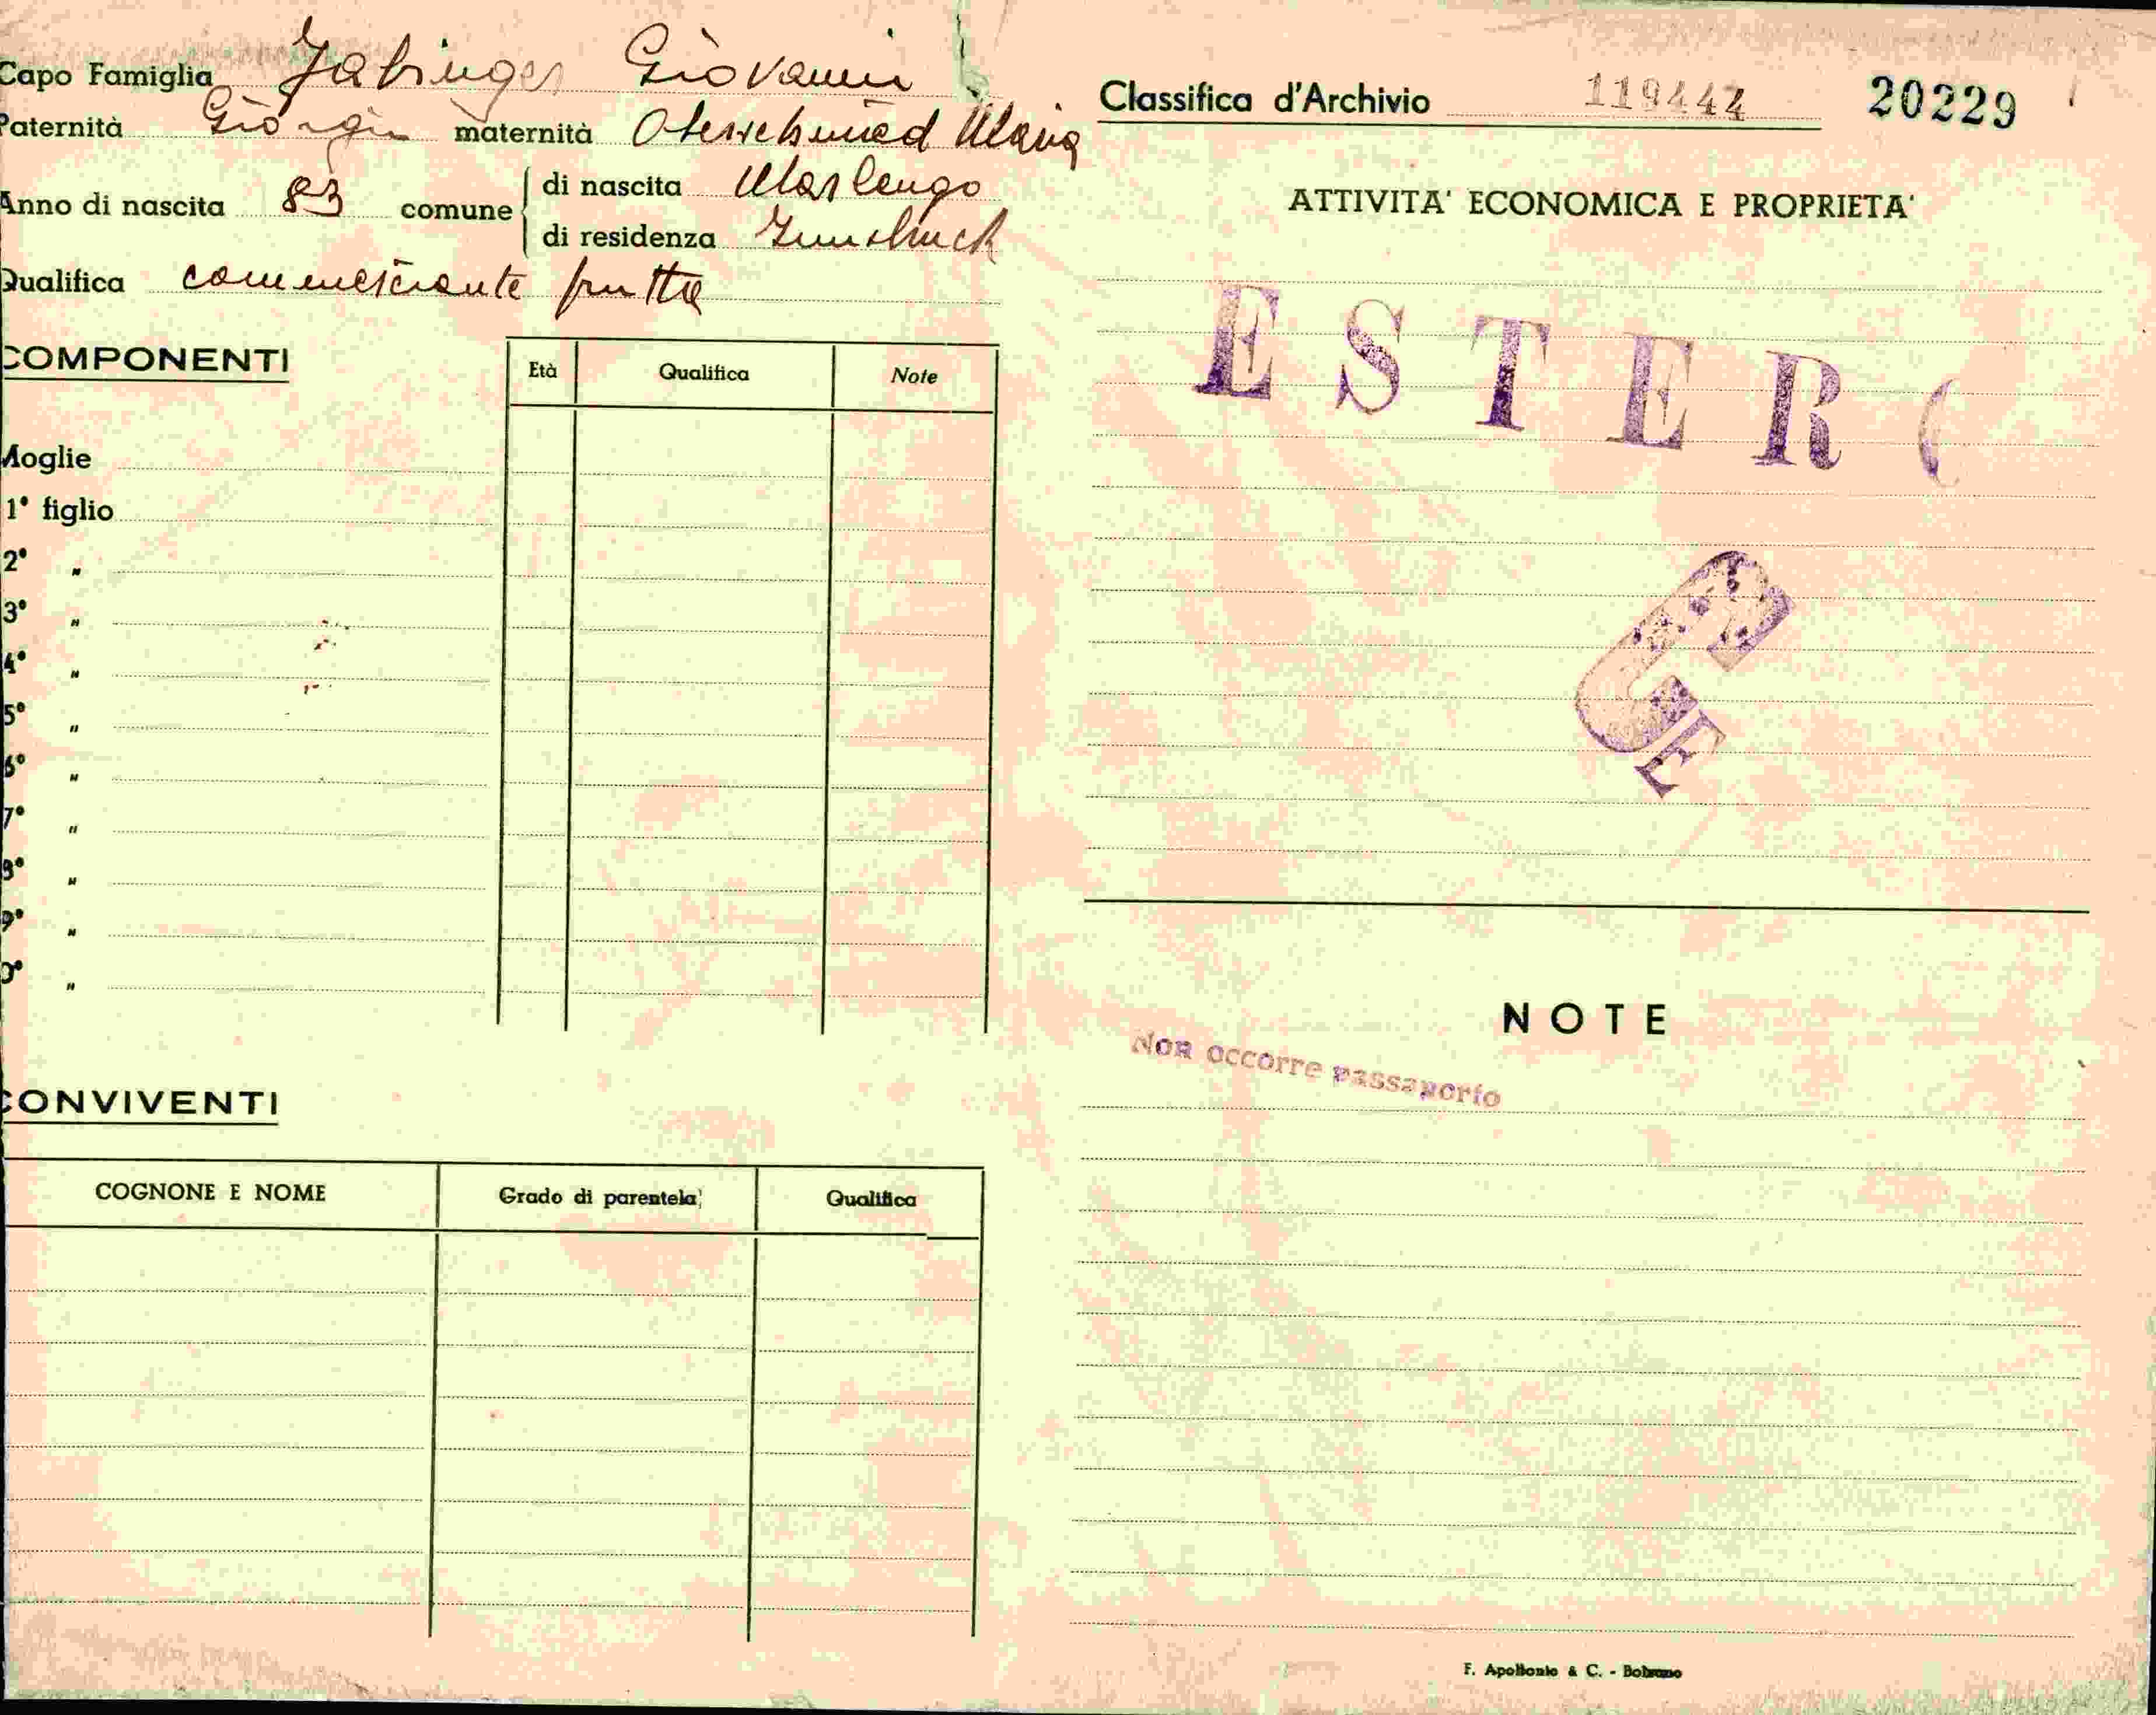 Capo Famiglia Jabinger Giovanni
Paternità Giorgio maternità Oberschmied Maria
Anno di nascita 83 comune di nascita Marlengo
di residenza Innsbruck
Qualifica commerciante frutta
COMPONENTI
Età Qualifica Note
Moglie
1° figlio
2° "
3° "
4° "
5° "
6° "
7° "
8° "
9° "
0° "
CONVIVENTI
COGNONE E NOME Grado di parentela Qualifica
Classifica d'Archivio 119444 20229
ATTIVITA' ECONOMICA E PROPRIETA'
ESTERO
GE
NOTE
Non occorre passaporto
F. Apollonio & C. - Bolzano